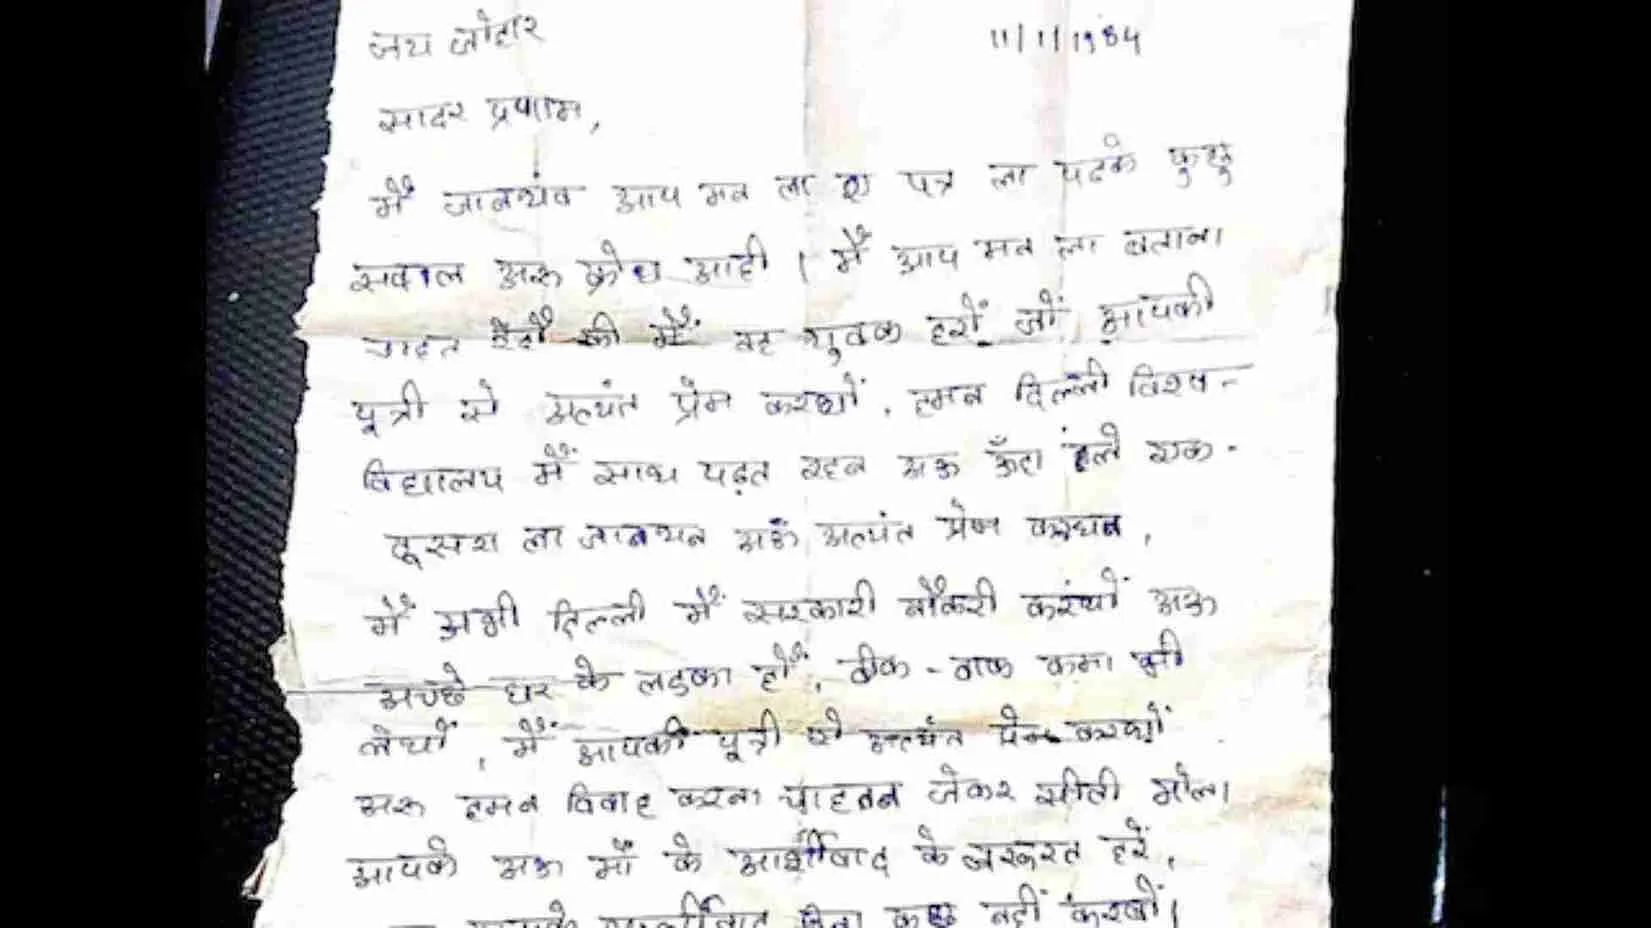 जय जोहार 11/1/1984
सादर प्रणाम,
मैं जानथंव आप मन ला ए पत्र ला पढके कुछु
सवाल अऊ क्रोध आही । मैं आप मन ला बताना
चाहत हौं की मैं वह युवक हरों जों आपकी
पूत्री से अत्यंत प्रेम करथों, हमन दिल्ली विश्व-
विद्यालय में साथ पढ़त रहन अऊ ऊँहा हंले एक-
दूसरा ला जानथन अऊ अत्यंत प्रेम करथन,
मैं अभी दिल्ली में सरकारी नौकरी करंथों अऊ
अच्छे घर के लडका हों, ठीक-ठाक कमा भी
लेथों, मैं आपकी पूत्री से अत्यंत प्रेम करथों
अऊ हमन विवाह करना चाहतन जेकर सीती मोला
आपके अऊ माँ के आर्शीवाद के जरूरत हरें,
आपके आर्शीवाद बिना कुछ नहीं करथों।